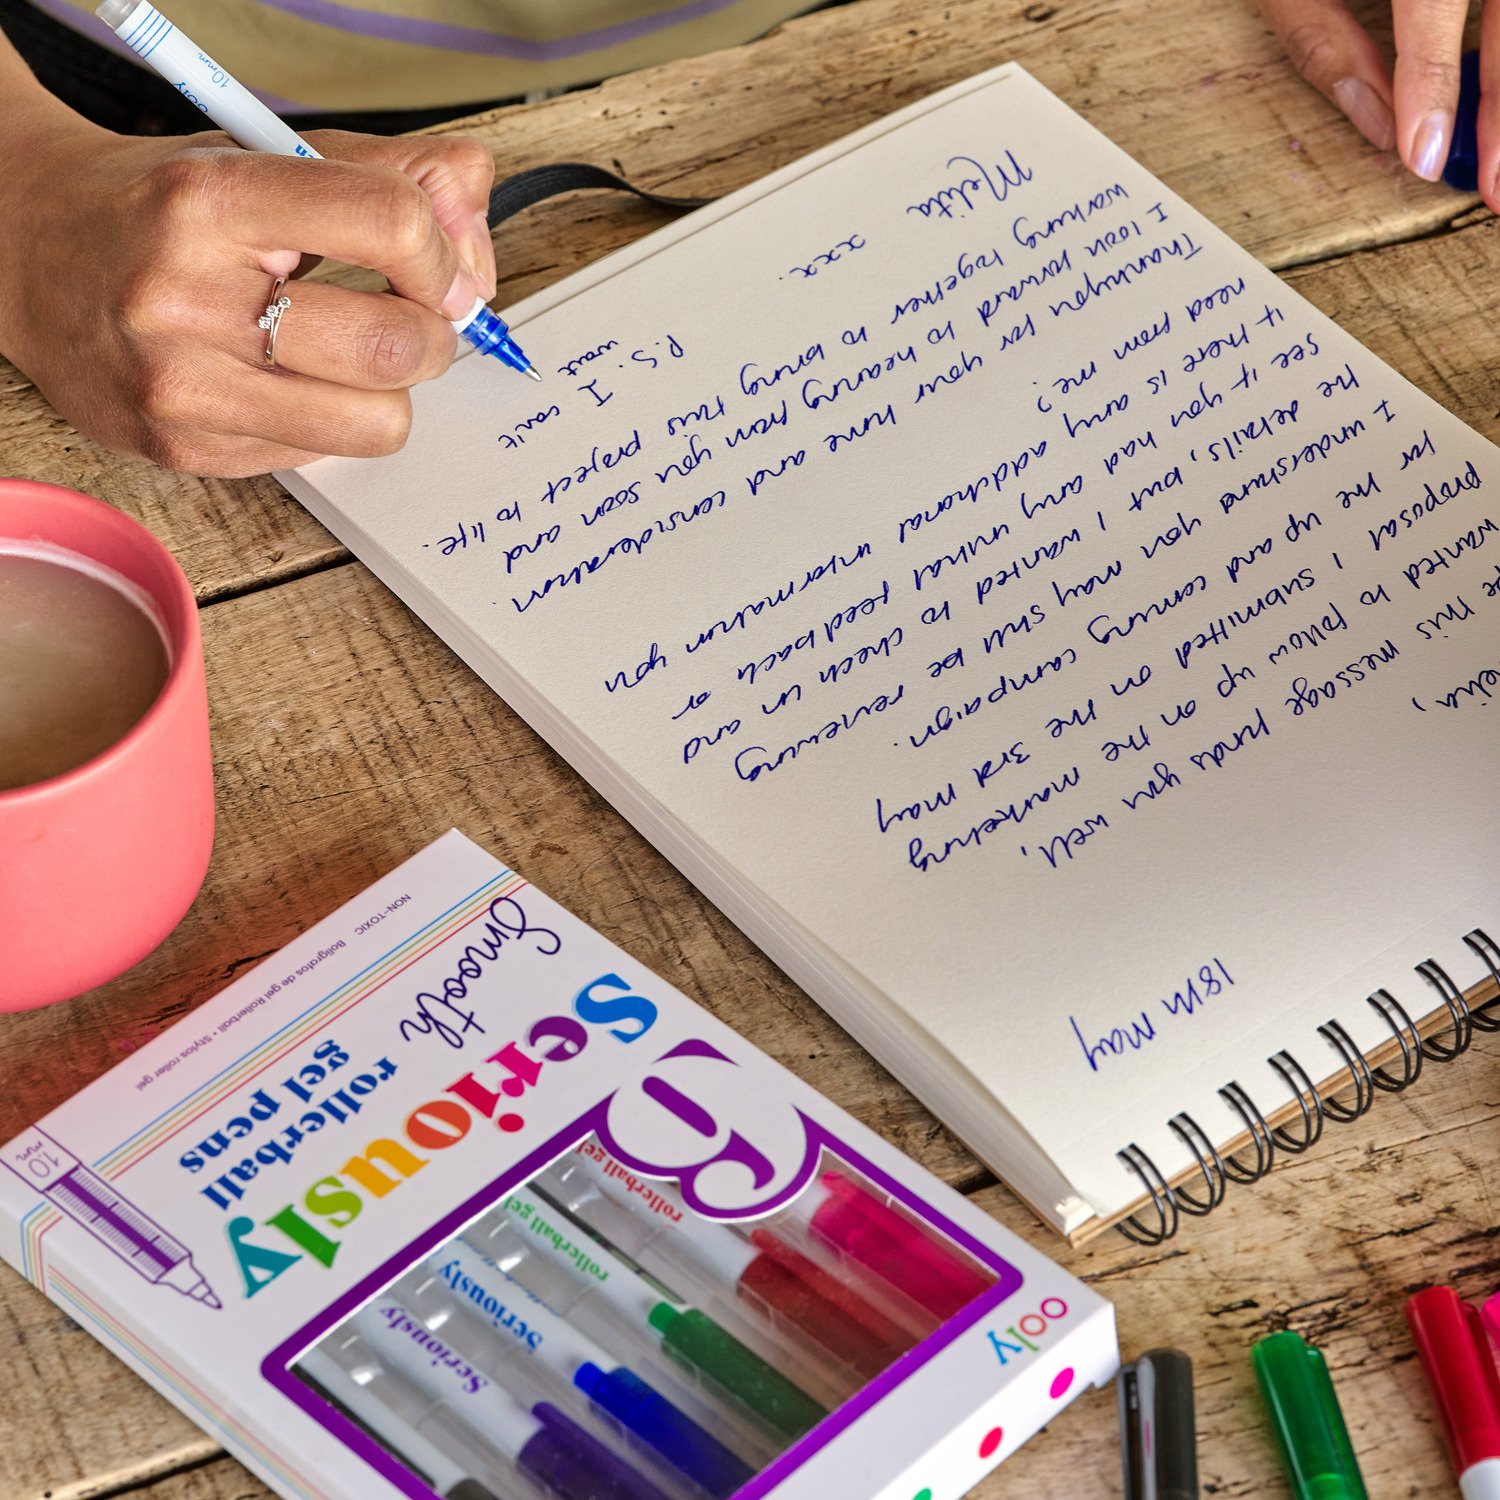 18th May
elia,
pe this message finds you well,
wanted to follow up on the marketing
proposal I submitted on the 3rd May
for the up and coming campaign.
I understand you may still be reviewing
the details, but I wanted to check in and
see if you had any initial feedback or
if there is any additional information you
need from me?
Thankyou for your time and consideration.
I look forward to hearing from you soon and
working together to bring this project to life.
Melita
xxx.
P.S. I can't
wait
ooly
1.0mm
NON-TOXIC
Boligrafos de gel Rollerball • Stylos roller gel
Smooth
rollerball
gel pens
Seriously
6
1.0
mm
rollerball gel
rollerball gel
Seriously
Seriously
ooly